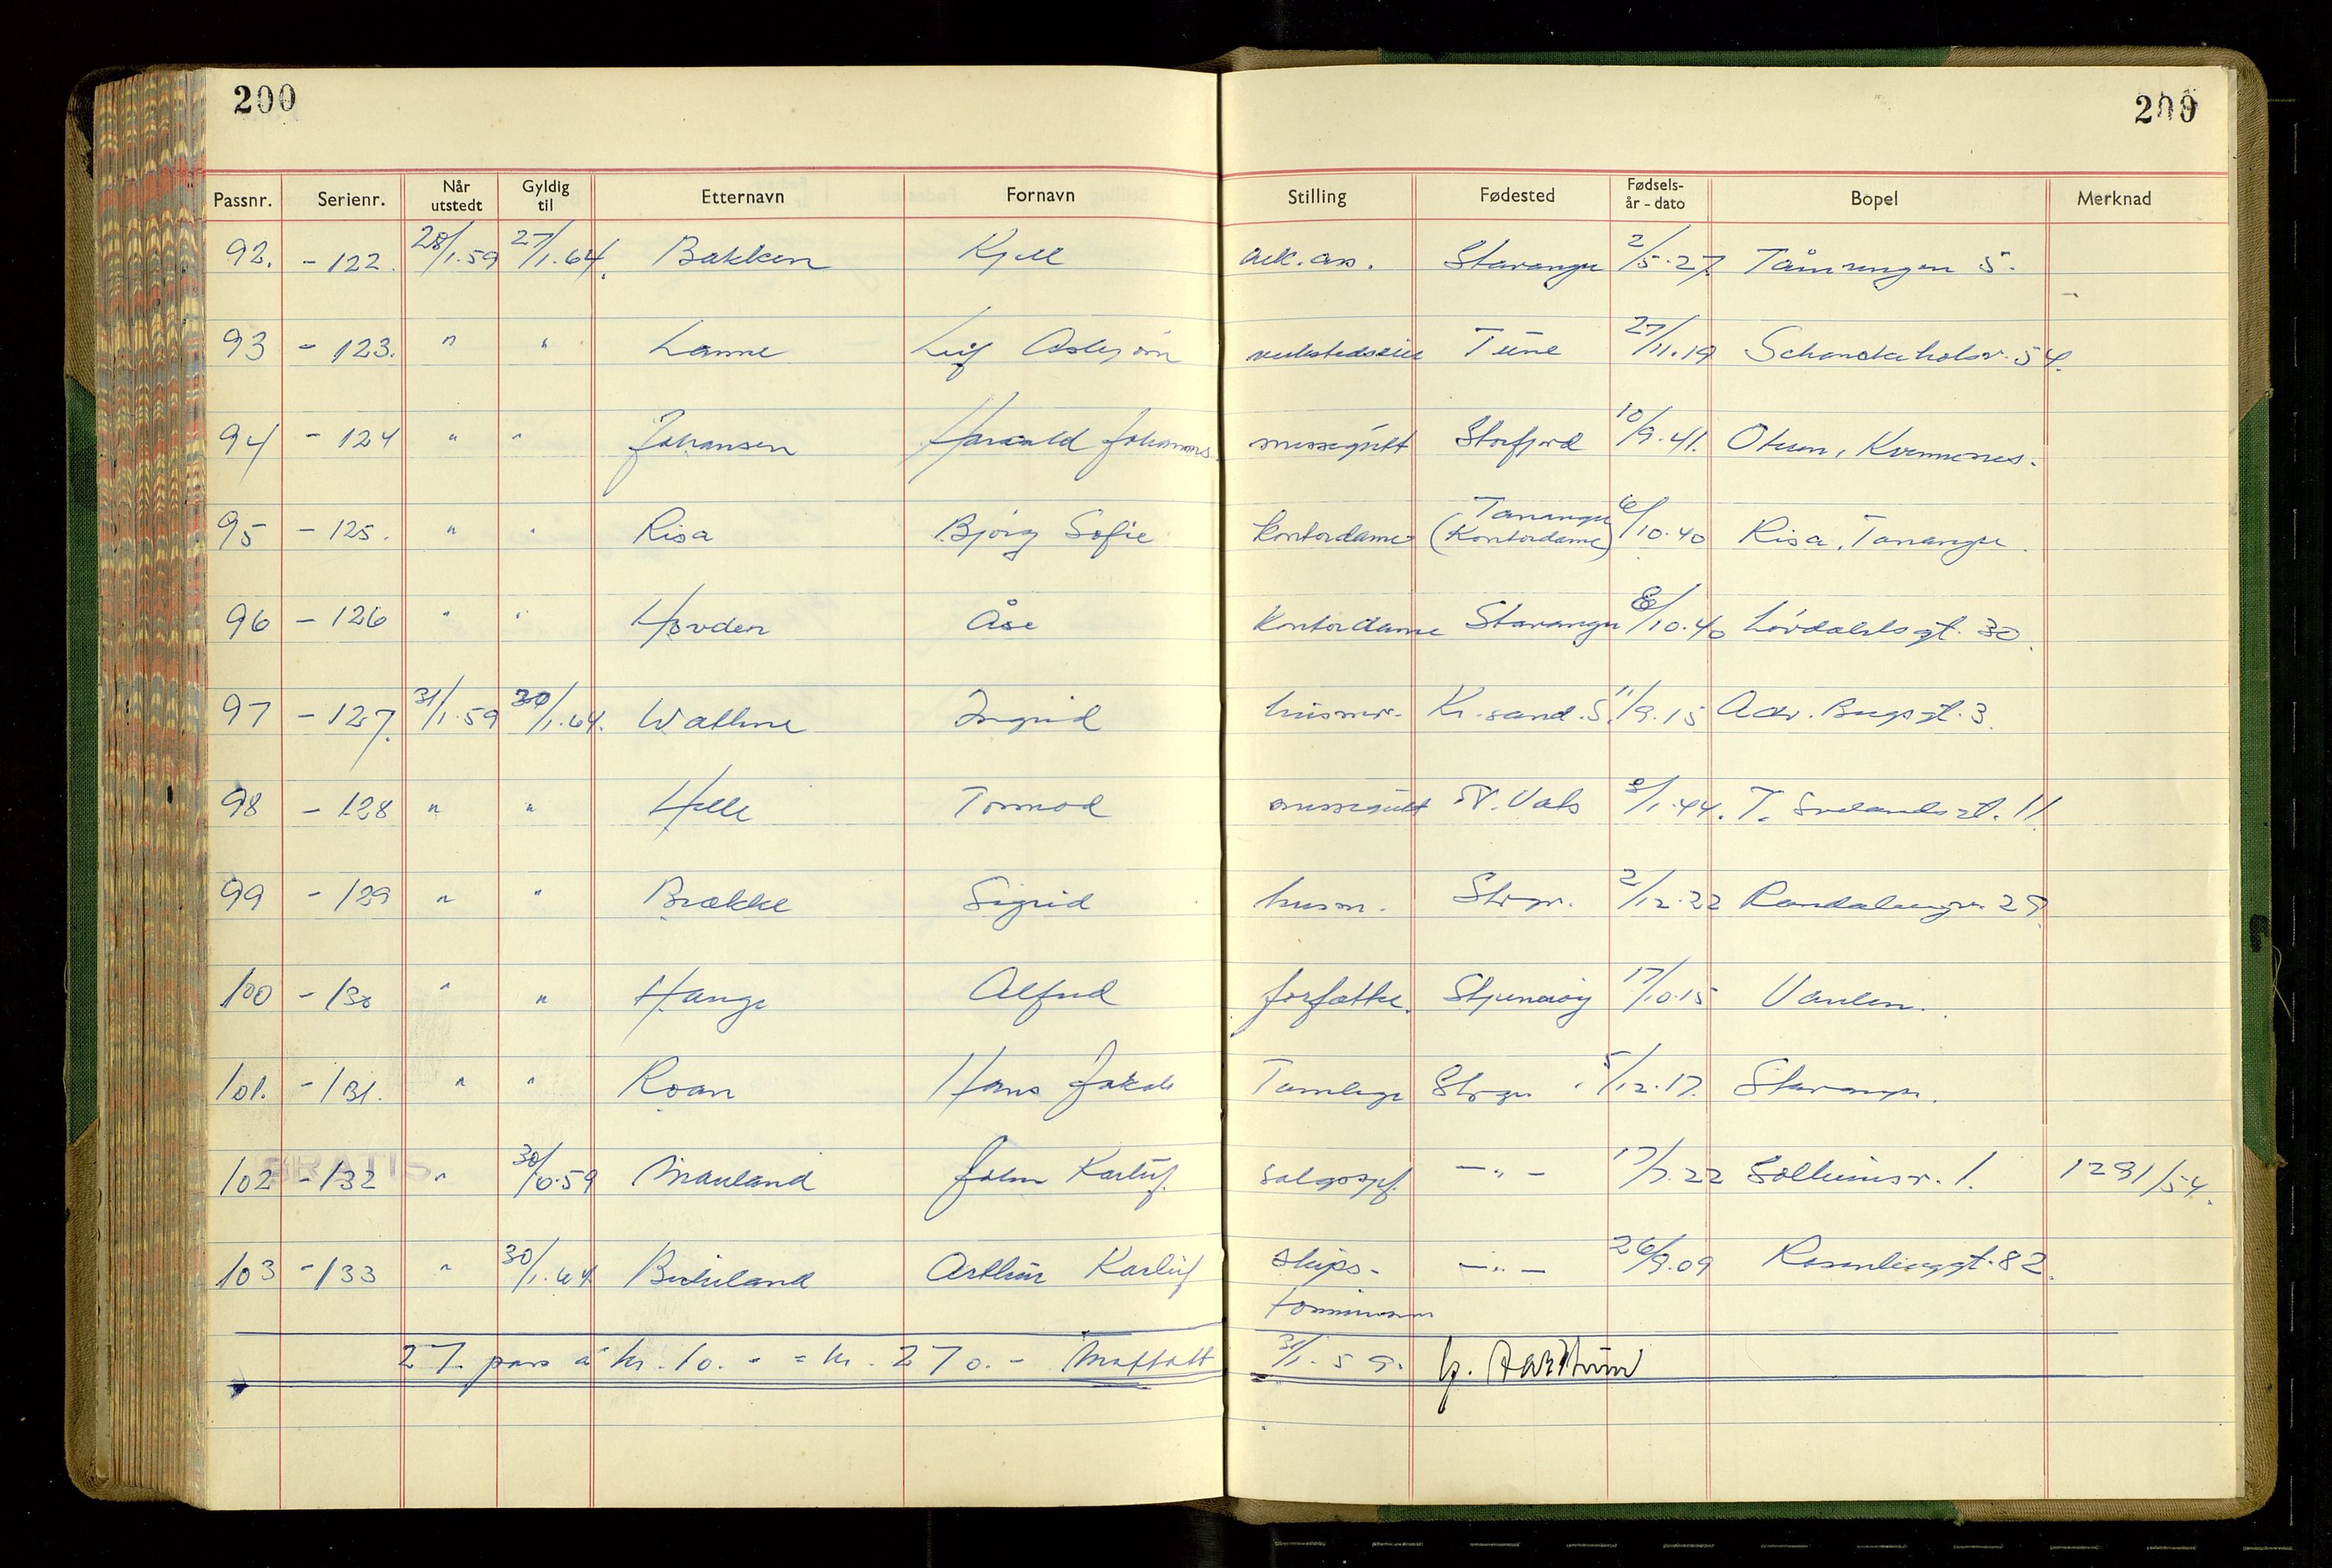 200
200
Passnr. Serienr. Når utstedt Gyldig til Etternavn Fornavn Stilling Fødested Fødsels-år - dato Bopel Merknad
92. - 122. 28/1.59 27/1.64. Bakken Kjell Stavanger 2/5.27. 5.
93 - 123. " " Leif Asbjørn Tune 27/11.19 54.
94 - 124 " " Johansen Harald Johannes messegutt Storfjord 10/9.41.
95 - 125. " " Risa Bjørg Sofie kontordame Tananger (Kontordame) 6/10.40 Risa, Tananger.
96 - 126 " " Hovden Åse Kontordame Stavanger 8/10.40 Løvdahlsgt. 30.
97 - 127. 31/1.59 30/1.64. Wathne Ingrid husmor. Kr.sand.S. 11/9.15 3.
98 - 128 " " Helle Tormod messegutt N. Vats 8/1.44. 11
99 - 129 " " Brekke Sigrid husm. 2/12.22
100 - 130 " " Hauge Alfred forfatter. Sjernarøy 17/10.15 Vaulen.
101. - 131. " " Roan Hans Jakob Tannlege 5/12.17. Stavanger.
GRATIS
102 - 132 " 30/10.59 Mauland John Karluf. salgssjef. -"- 17/7.22 1. 1291/54.
103 - 133 " 30/1.64 Birkeland Arthur Karluf skips- -"- 26/9.09 Rosenberggt. 82.
27. pass à kr. 10.- = kr. 270.- Mottatt 31/1.59.